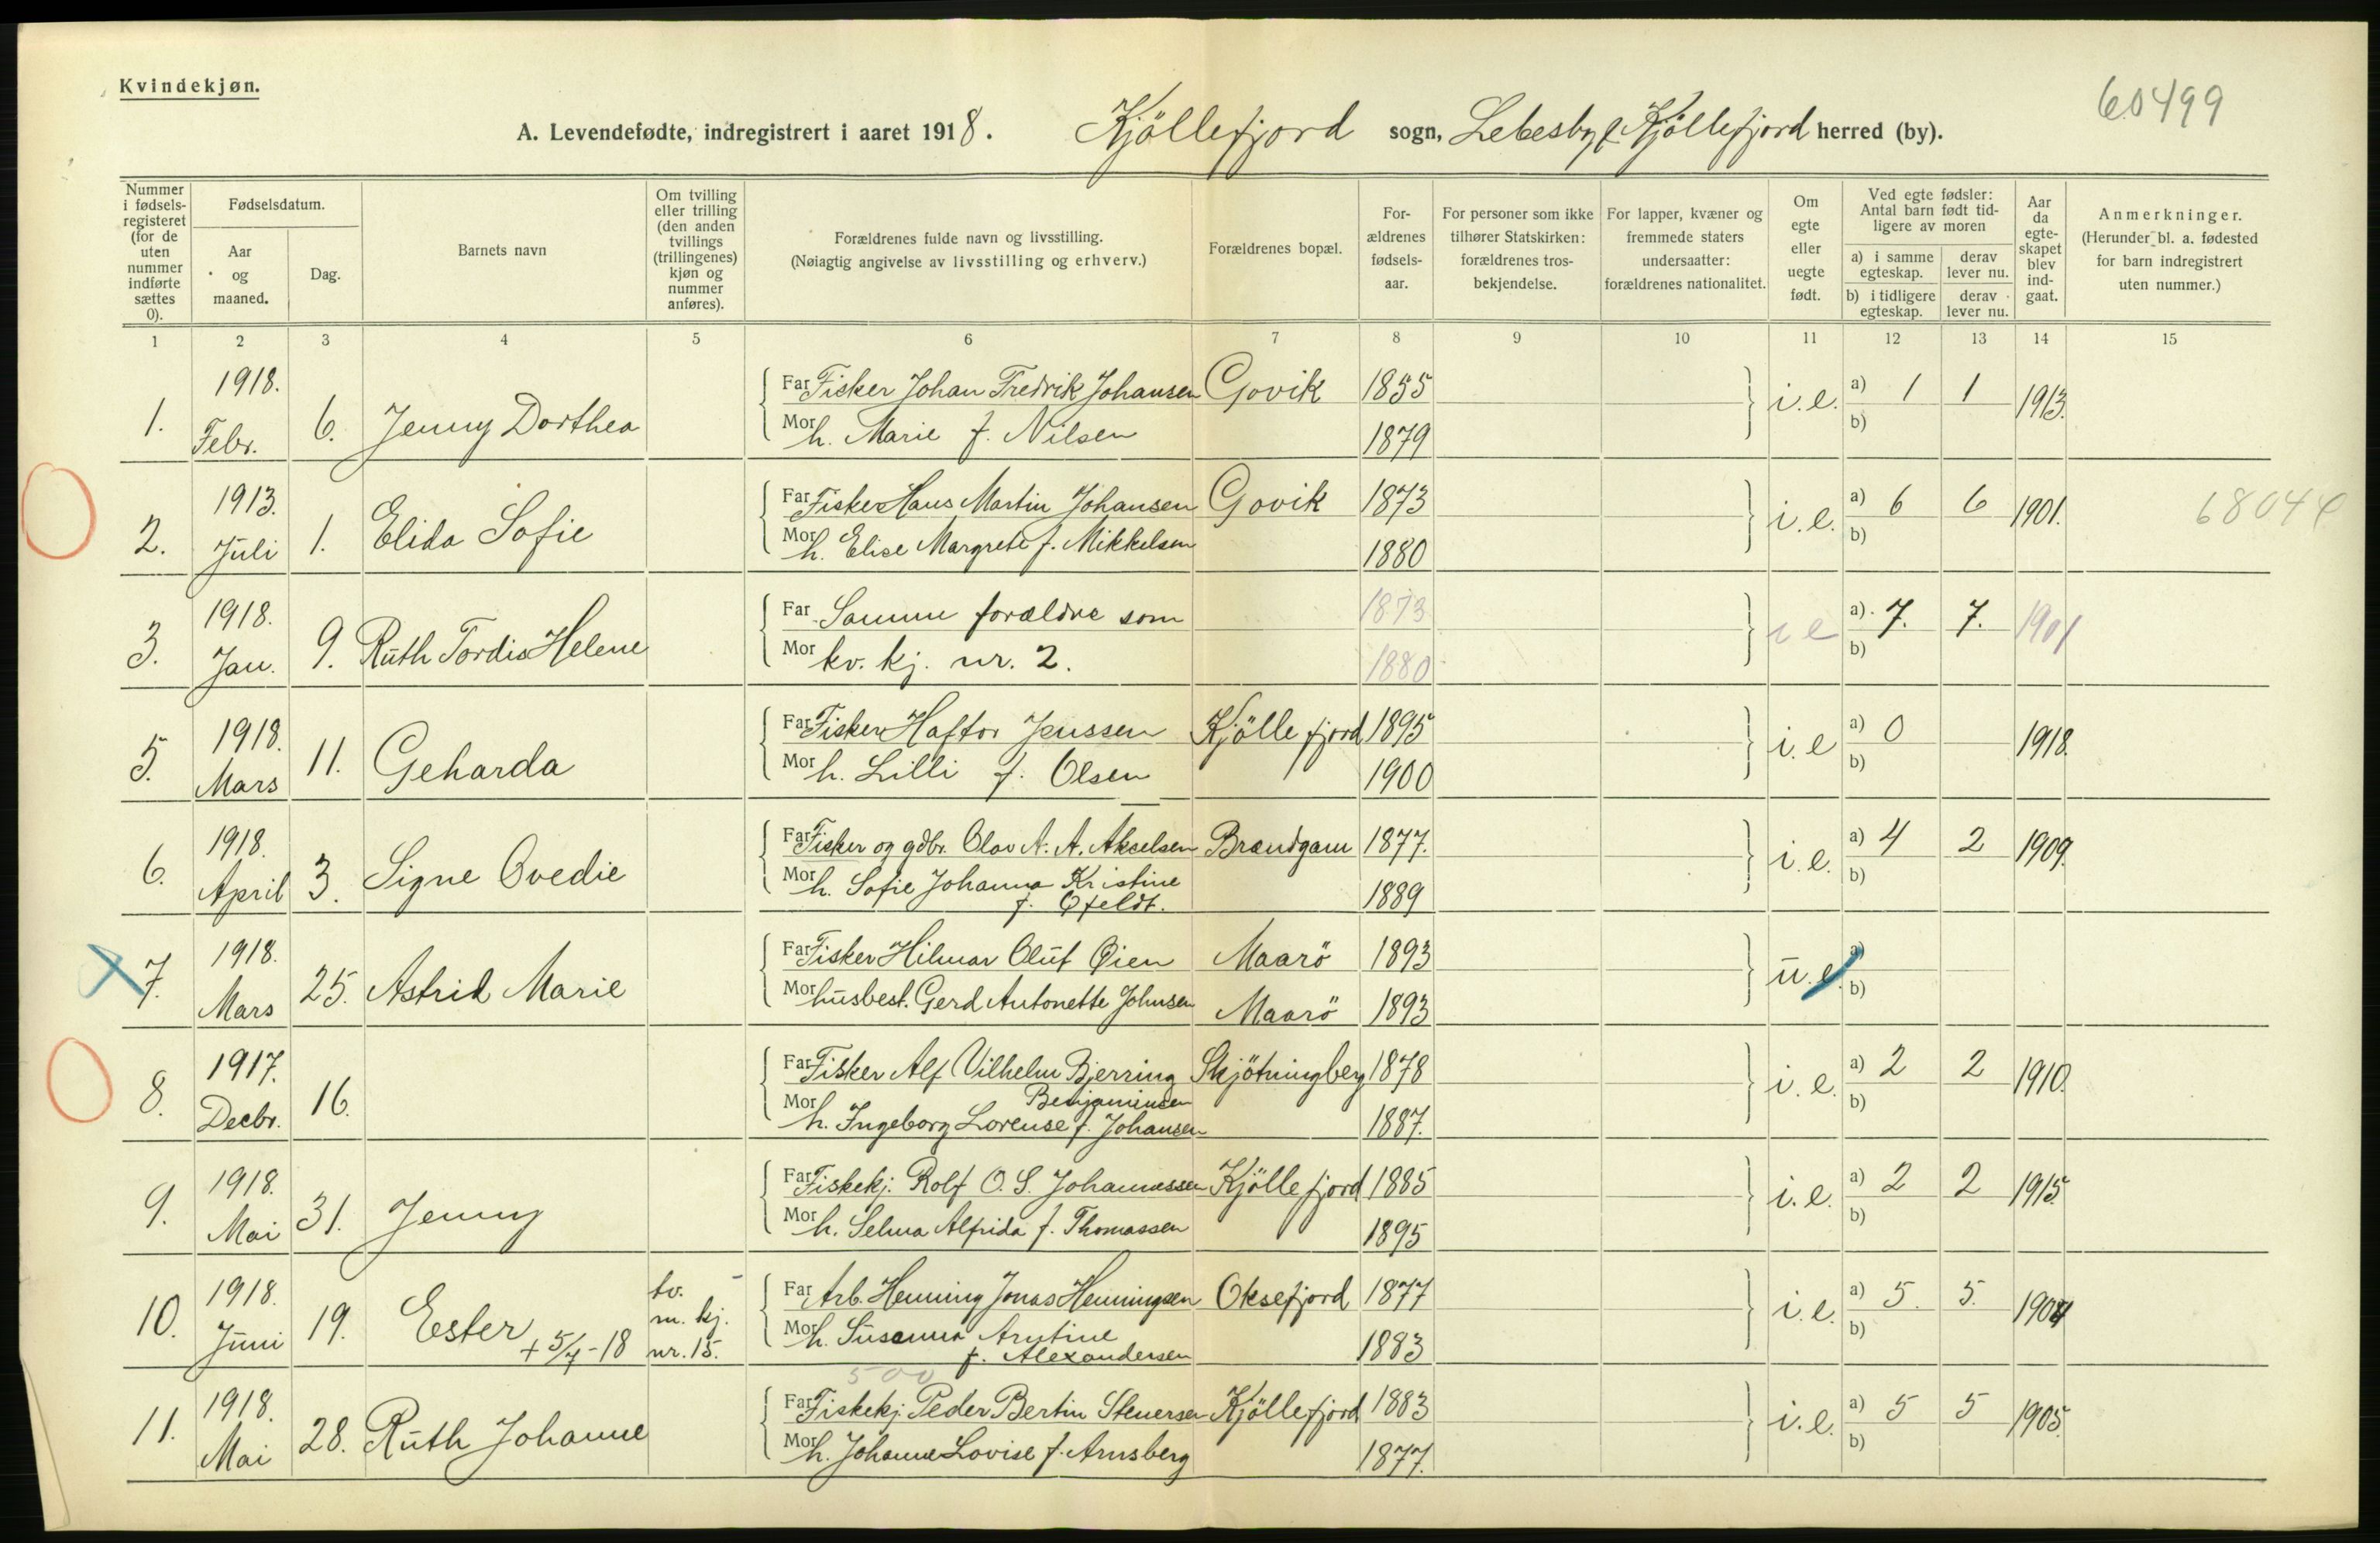 Kvindekjøn.
60499
A. Levendefødte, indregistrert i aaret 1918. Kjöllefjord sogn, Lebesby & Kjöllefjord herred (by).
Nummer i fødsels-registeret (for de uten nummer indførte sættes 0).
Fødselsdatum.
Aar og maaned.
Dag.
Barnets navn
Om tvilling eller trilling (den anden tvillings (trillingenes) kjøn og nummer anføres).
Forældrenes fulde navn og livsstilling.
(Nøiagtig angivelse av livsstilling og erhverv.)
Forældrenes bopæl.
For-ældrenes fødsels-aar.
For personer som ikke tilhører Statskirken: forældrenes tros-bekjendelse.
For lapper, kvæner og fremmede staters undersaatter: forældrenes nationalitet.
Om egte eller uegte født.
Ved egte fødsler: Antal barn født tid-ligere av moren
a) i samme egteskap. derav lever nu.
b) i tidligere egteskap. derav lever nu.
Aar da egte-skapet blev ind-gaat.
Anmerkninger.
(Herunder bl. a. fødested for barn indregistrert uten nummer.)
1 2 3 4 5 6 7 8 9 10 11 12 13 14 15
1. 1918. Febr. 6. Jenny Dorthea
Far Fisker Johan Fredrik Johansen Govik 1855 i.e. a) 1 1 1913.
Mor h. Marie f. Nilsen 1879 b)
2. 1913. Juli 1. Elida Sofie
Far Fisker Hans Martin Johansen Govik 1873 i.e. a) 6 6 1901. 68044
Mor h. Elise Margrete f. Mikkelsen 1880 b)
3. 1918. Jan. 9. Ruth Tordis Helene
Far Samme forældre som 1873 i e a) 7. 7. 1901
Mor kv. kj. nr. 2. 1880 b)
5. 1918. Mars 11. Geharda
Far Fisker Haftor Jenssen Kjöllefjord 1895 i.e a) 0 1918.
Mor h. Lilli f. Olsen 1900 b)
6. 1918. April 3. Signe Ovedie
Far Fisker og gdbr. Olav A. A. Akselsen Brandgam 1877. i.e. a) 4 2 1909.
Mor h. Sofie Johanna Kristine
f. Qfeldt. 1889 b)
7. 1918. Mars 25. Astrid Marie
Far Fisker Hilmar Oluf Øien Maarö 1893 u.e. a)
Mor husbest. Gerd Antonette Johnsen Maarö 1893 b)
8. 1917. Decbr. 16.
Far Fisker Alf Vilhelm Bjerring Skjötningberg 1878 i.e. a) 2 2 1910.
Benjaminsen
Mor h. Ingeborg Lorense f. Johansen 1887. b)
9. 1918. Mai 31. Jenny
Far Fiskekj. Rolf O. S. Johannessen Kjöllefjord 1885 i.e. a) 2 2 1915.
Mor h. Selma Alfrida f. Thomassen 1895 b)
10. 1918. Juni 19. Ester + 5/7-18 tv. m. kj. nr. 15.
Far Arb. Henning Jonas Henningsen Oksefjord 1877 i.e. a) 5. 5. 1904
Mor h. Susanna Arntine
f. Alexandersen 1883 b)
500
11. 1918. Mai 28. Ruth Johanne
Far Fiskekj. Peder Bertin Stenersen Kjöllefjord 1883 i.e. a) 5 5 1905.
Mor h. Johanne Lovise f. Arnsberg 1877. b)